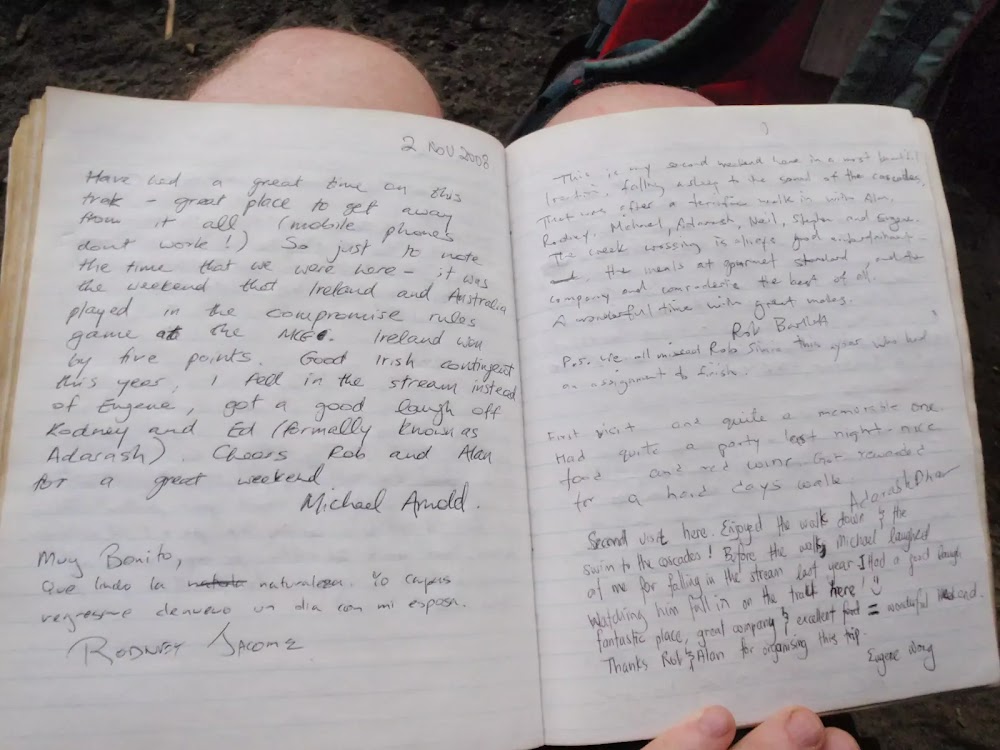 2 NOV 2008
Have had a great time on this
trek - great place to get away
from it all (mobile phones
dont work!) So just to note
the time that we were here - it was
the weekend that Ireland and Australia
played in the compromise rules
game at the MCG. Ireland won
by five points. Good Irish contingent
this year, I fell in the stream instead
of Eugene, got a good laugh off
Rodney and Ed (formally known as
Adarash). Cheers Rob and Alan
for a great weekend
Michael Arnold.
Muy Bonito,
Que lindo la naturaleza. Yo
regresque denuevo un dia con mi esposa.
RODNEY JACOME
This is my second weekend here in a most beautiful
location, falling asleep to the sound of the cascades,
That was after a terrific walk in with Alan,
Rodney, Michael, Adarash, Neil, Stephen and Eugene.
The creek crossing is always good entertainment
the meals at gourmet standard, and the
company and comraderie the best of all.
A wonderful time with great mates.
Rob Bartlett
P.S. We all missed Rob this year who had
an assignment to finish.
First visit and quite a memorable one.
Had quite a party last night - nice
food and red wine. Got rewarded
for a hard days walk.
Adarash Dhar
Second visit here. Enjoyed the walk down & the
swim to the cascades! Before the walk, Michael laughed
at me for falling in the stream last year. I Had a good laugh
Watching him fall in on the trail here!
fantastic place, great company & excellent food = wonderful Weekend.
Thanks Rob & Alan for organising this trip.
Eugene Wong